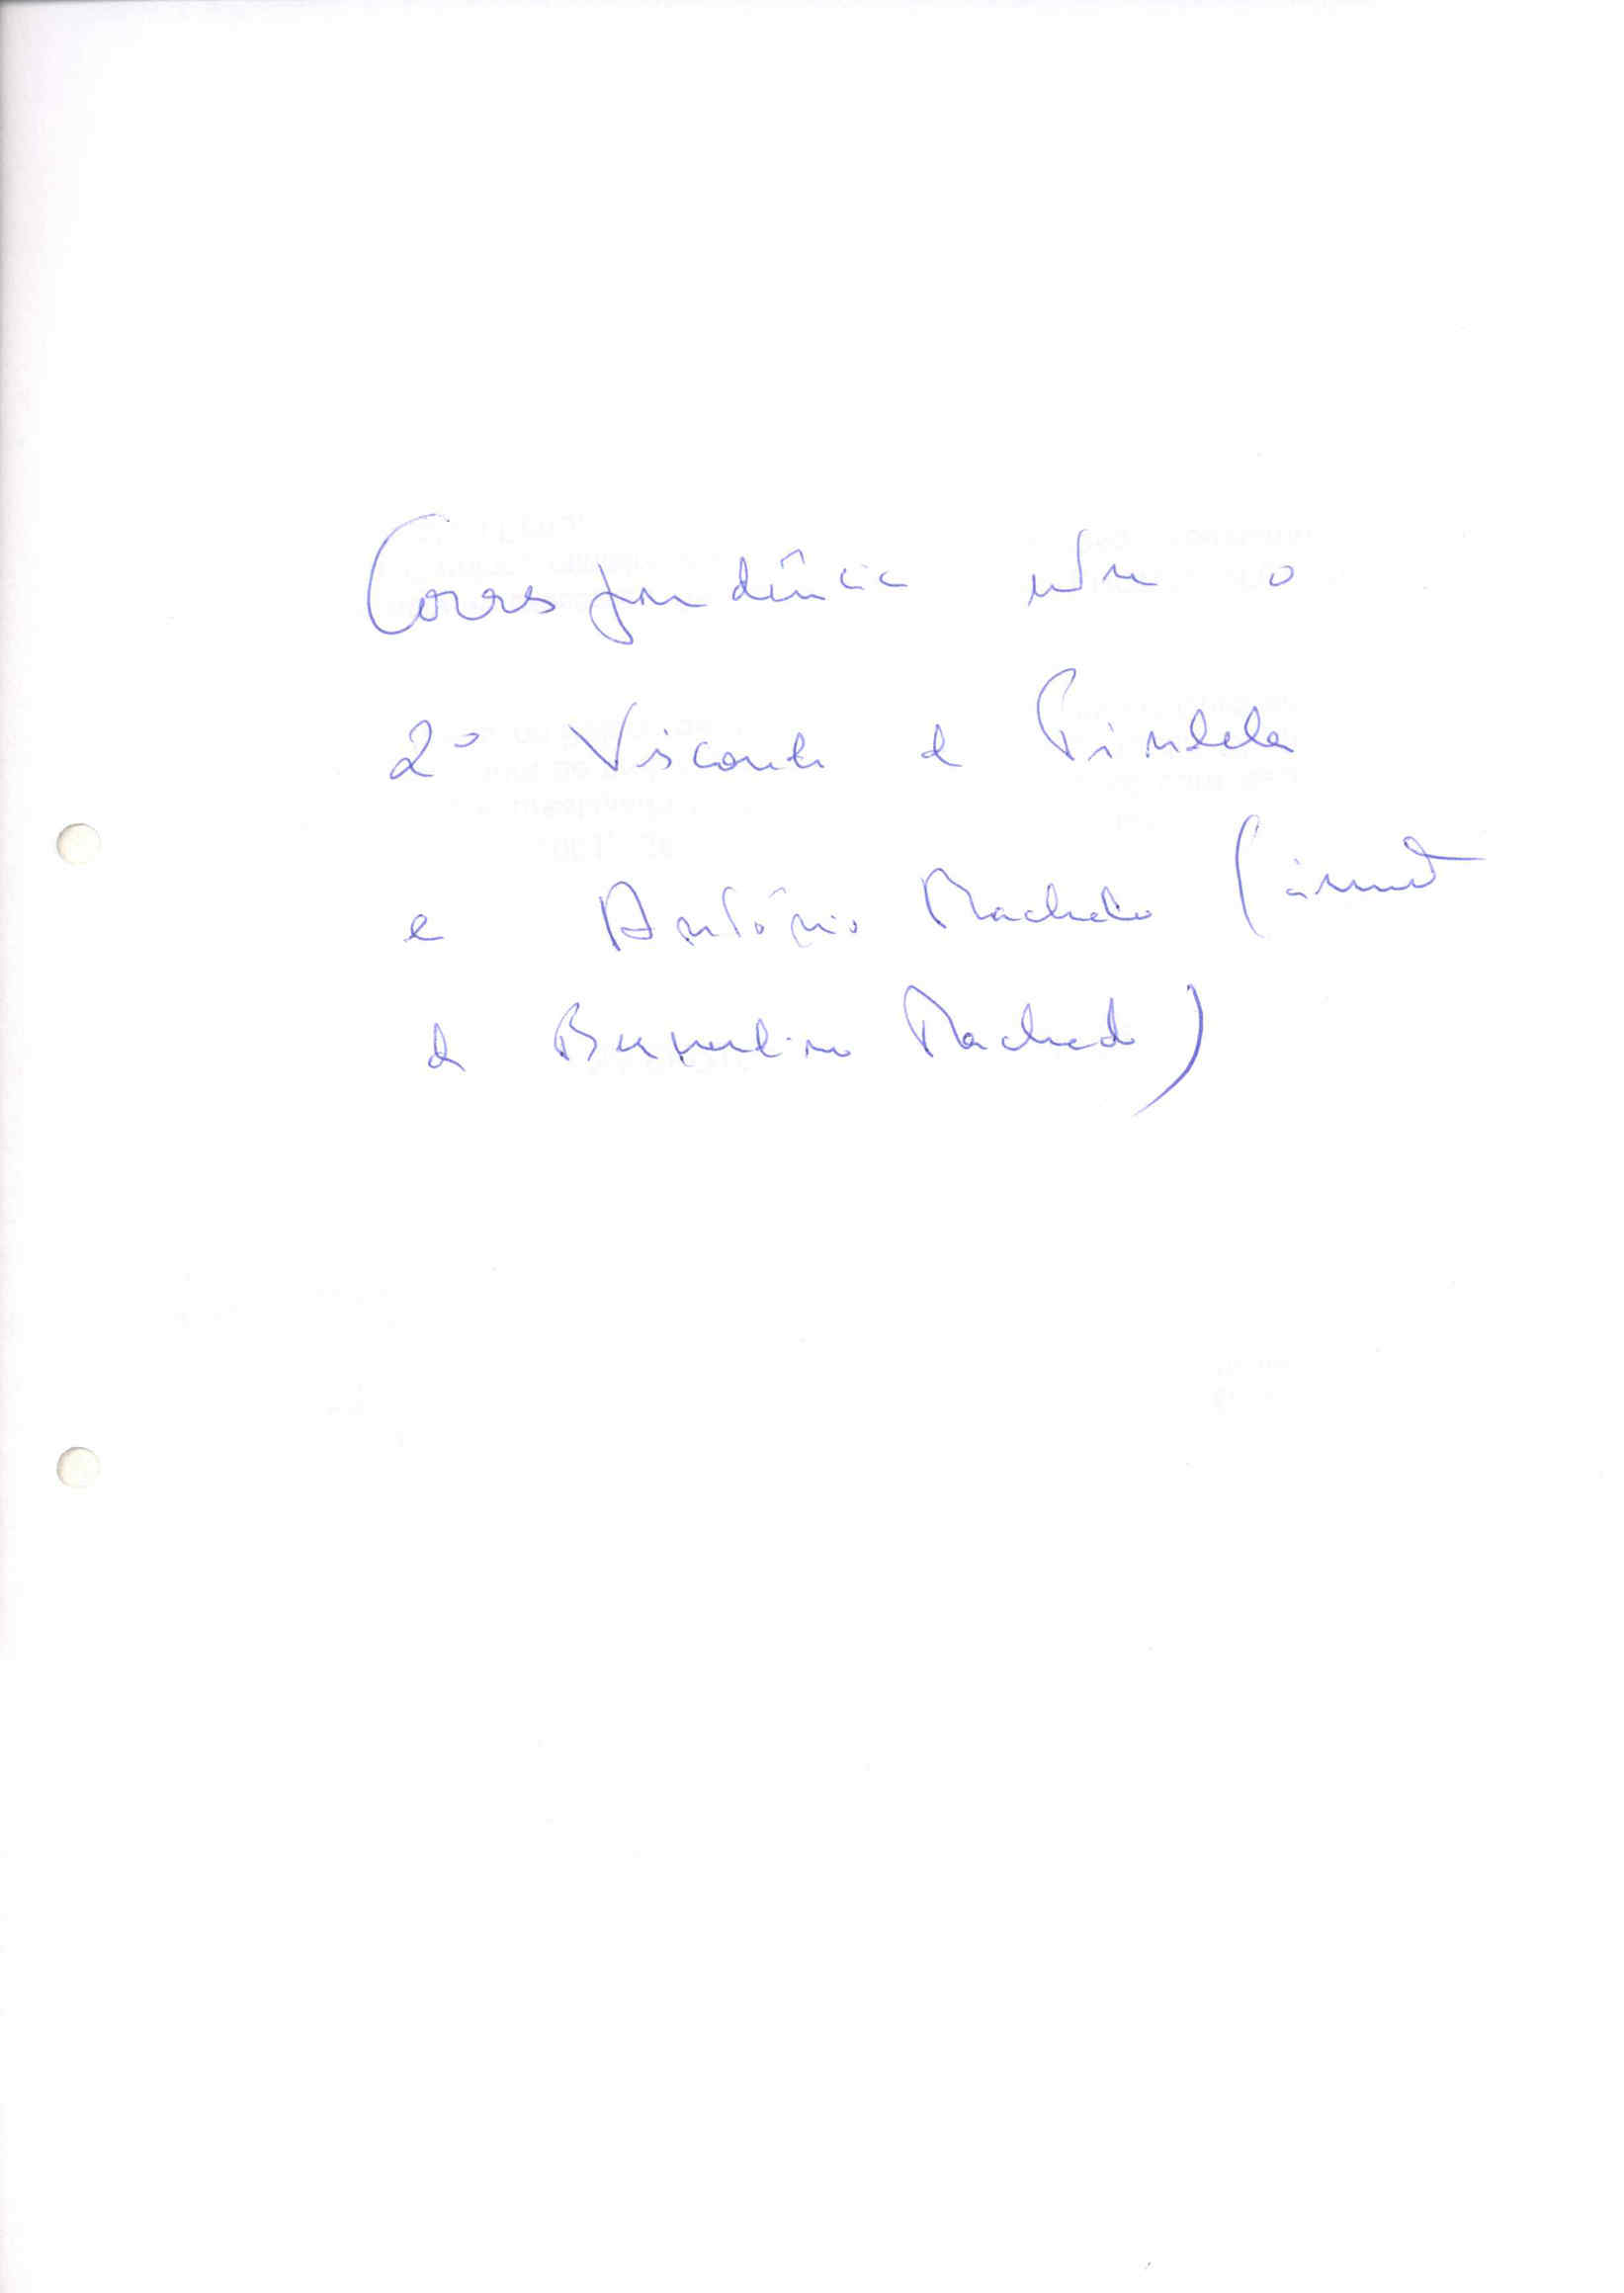 Correspondência entre o
2º Visconde de Pindela
e António Machado (irmão
de Bernardino Machado)